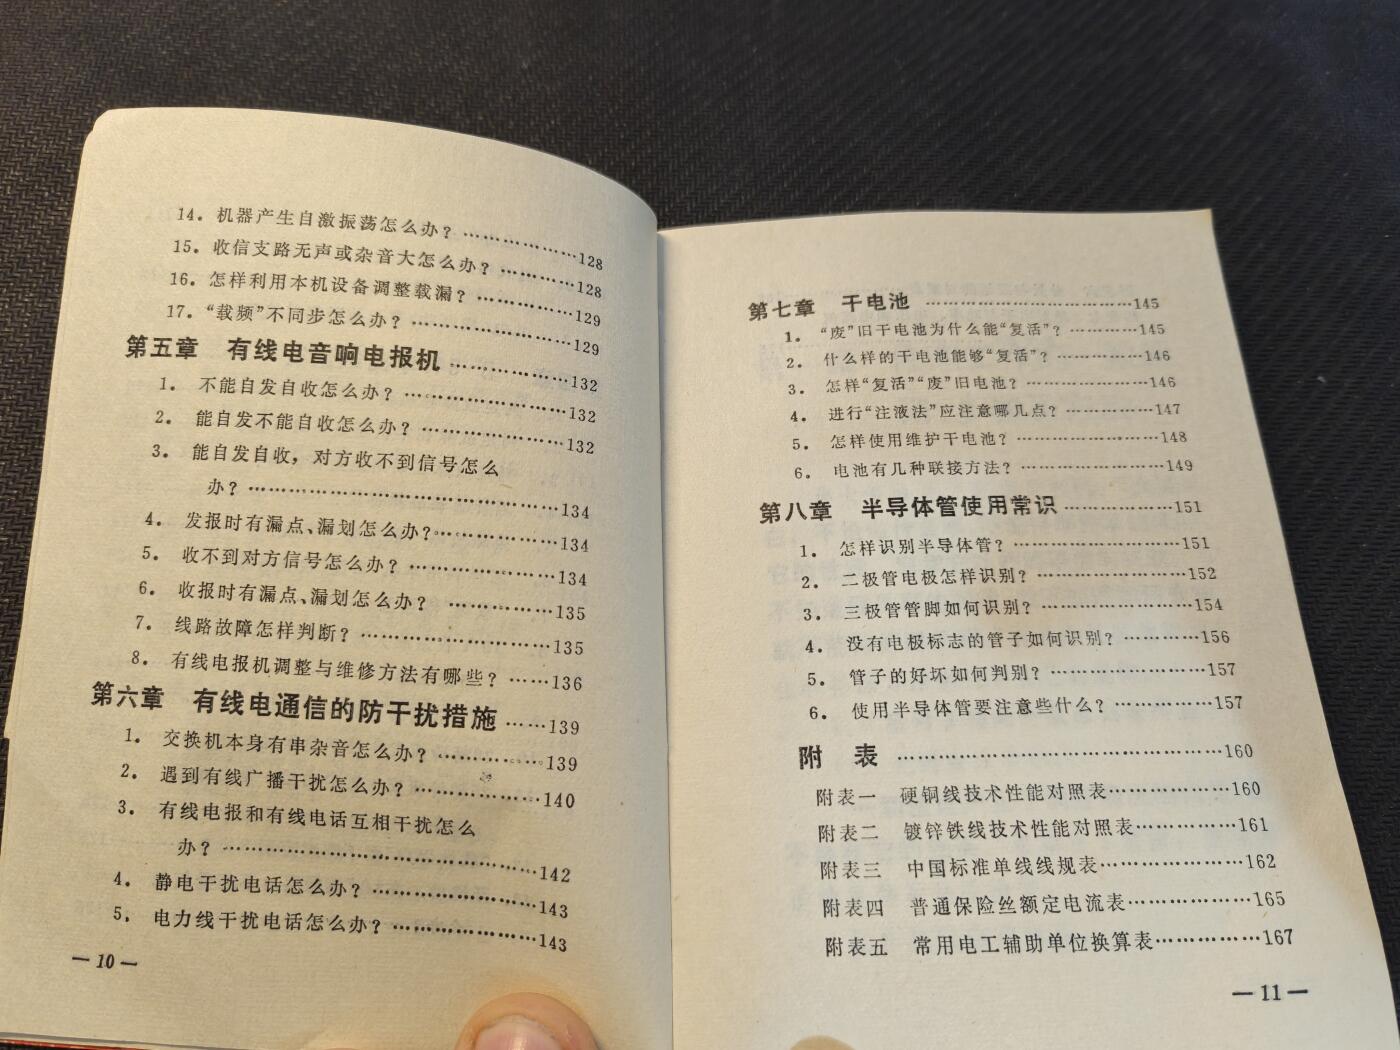 14. 机器产生自激振荡怎么办？………………128
15. 收信支路无声或杂音大怎么办？…………128
16. 怎样利用本机设备调整载漏？……………129
17. “载频”不同步怎么办？……………………129
第五章 有线电音响电报机………………132
1. 不能自发自收怎么办？……………………132
2. 能自发不能自收怎么办？…………………132
3. 能自发自收，对方收不到信号怎么
办？……………………………………………134
4. 发报时有漏点、漏划怎么办？………………134
5. 收不到对方信号怎么办？…………………134
6. 收报时有漏点、漏划怎么办？ ……………135
7. 线路故障怎样判断？………………………135
8. 有线电报机调整与维修方法有哪些？……136
第六章 有线电通信的防干扰措施……139
1. 交换机本身有串杂音怎么办？……………139
2. 遇到有线广播干扰怎么办？………………140
3. 有线电报和有线电话互相干扰怎么
办？……………………………………………142
4. 静电干扰电话怎么办？……………………143
5. 电力线干扰电话怎么办？…………………143
— 10 —
第七章 干电池 …………………………145
1. “废”旧干电池为什么能“复活”？…………145
2. 什么样的干电池能够“复活”？……………146
3. 怎样“复活”“废”旧电池？…………………146
4. 进行“注液法”应注意哪几点？……………147
5. 怎样使用维护干电池？……………………148
6. 电池有几种联接方法？……………………149
第八章 半导体管使用常识………………151
1. 怎样识别半导体管？………………………151
2. 二极管电极怎样识别？……………………152
3. 三极管管脚如何识别？……………………154
4. 没有电极标志的管子如何识别？…………156
5. 管子的好坏如何判别？……………………157
6. 使用半导体管要注意些什么？……………157
附 表 ……………………………………160
附表一 硬铜线技术性能对照表………………160
附表二 镀锌铁线技术性能对照表……………161
附表三 中国标准单线线规表…………………162
附表四 普通保险丝额定电流表………………165
附表五 常用电工辅助单位换算表……………167
— 11 —